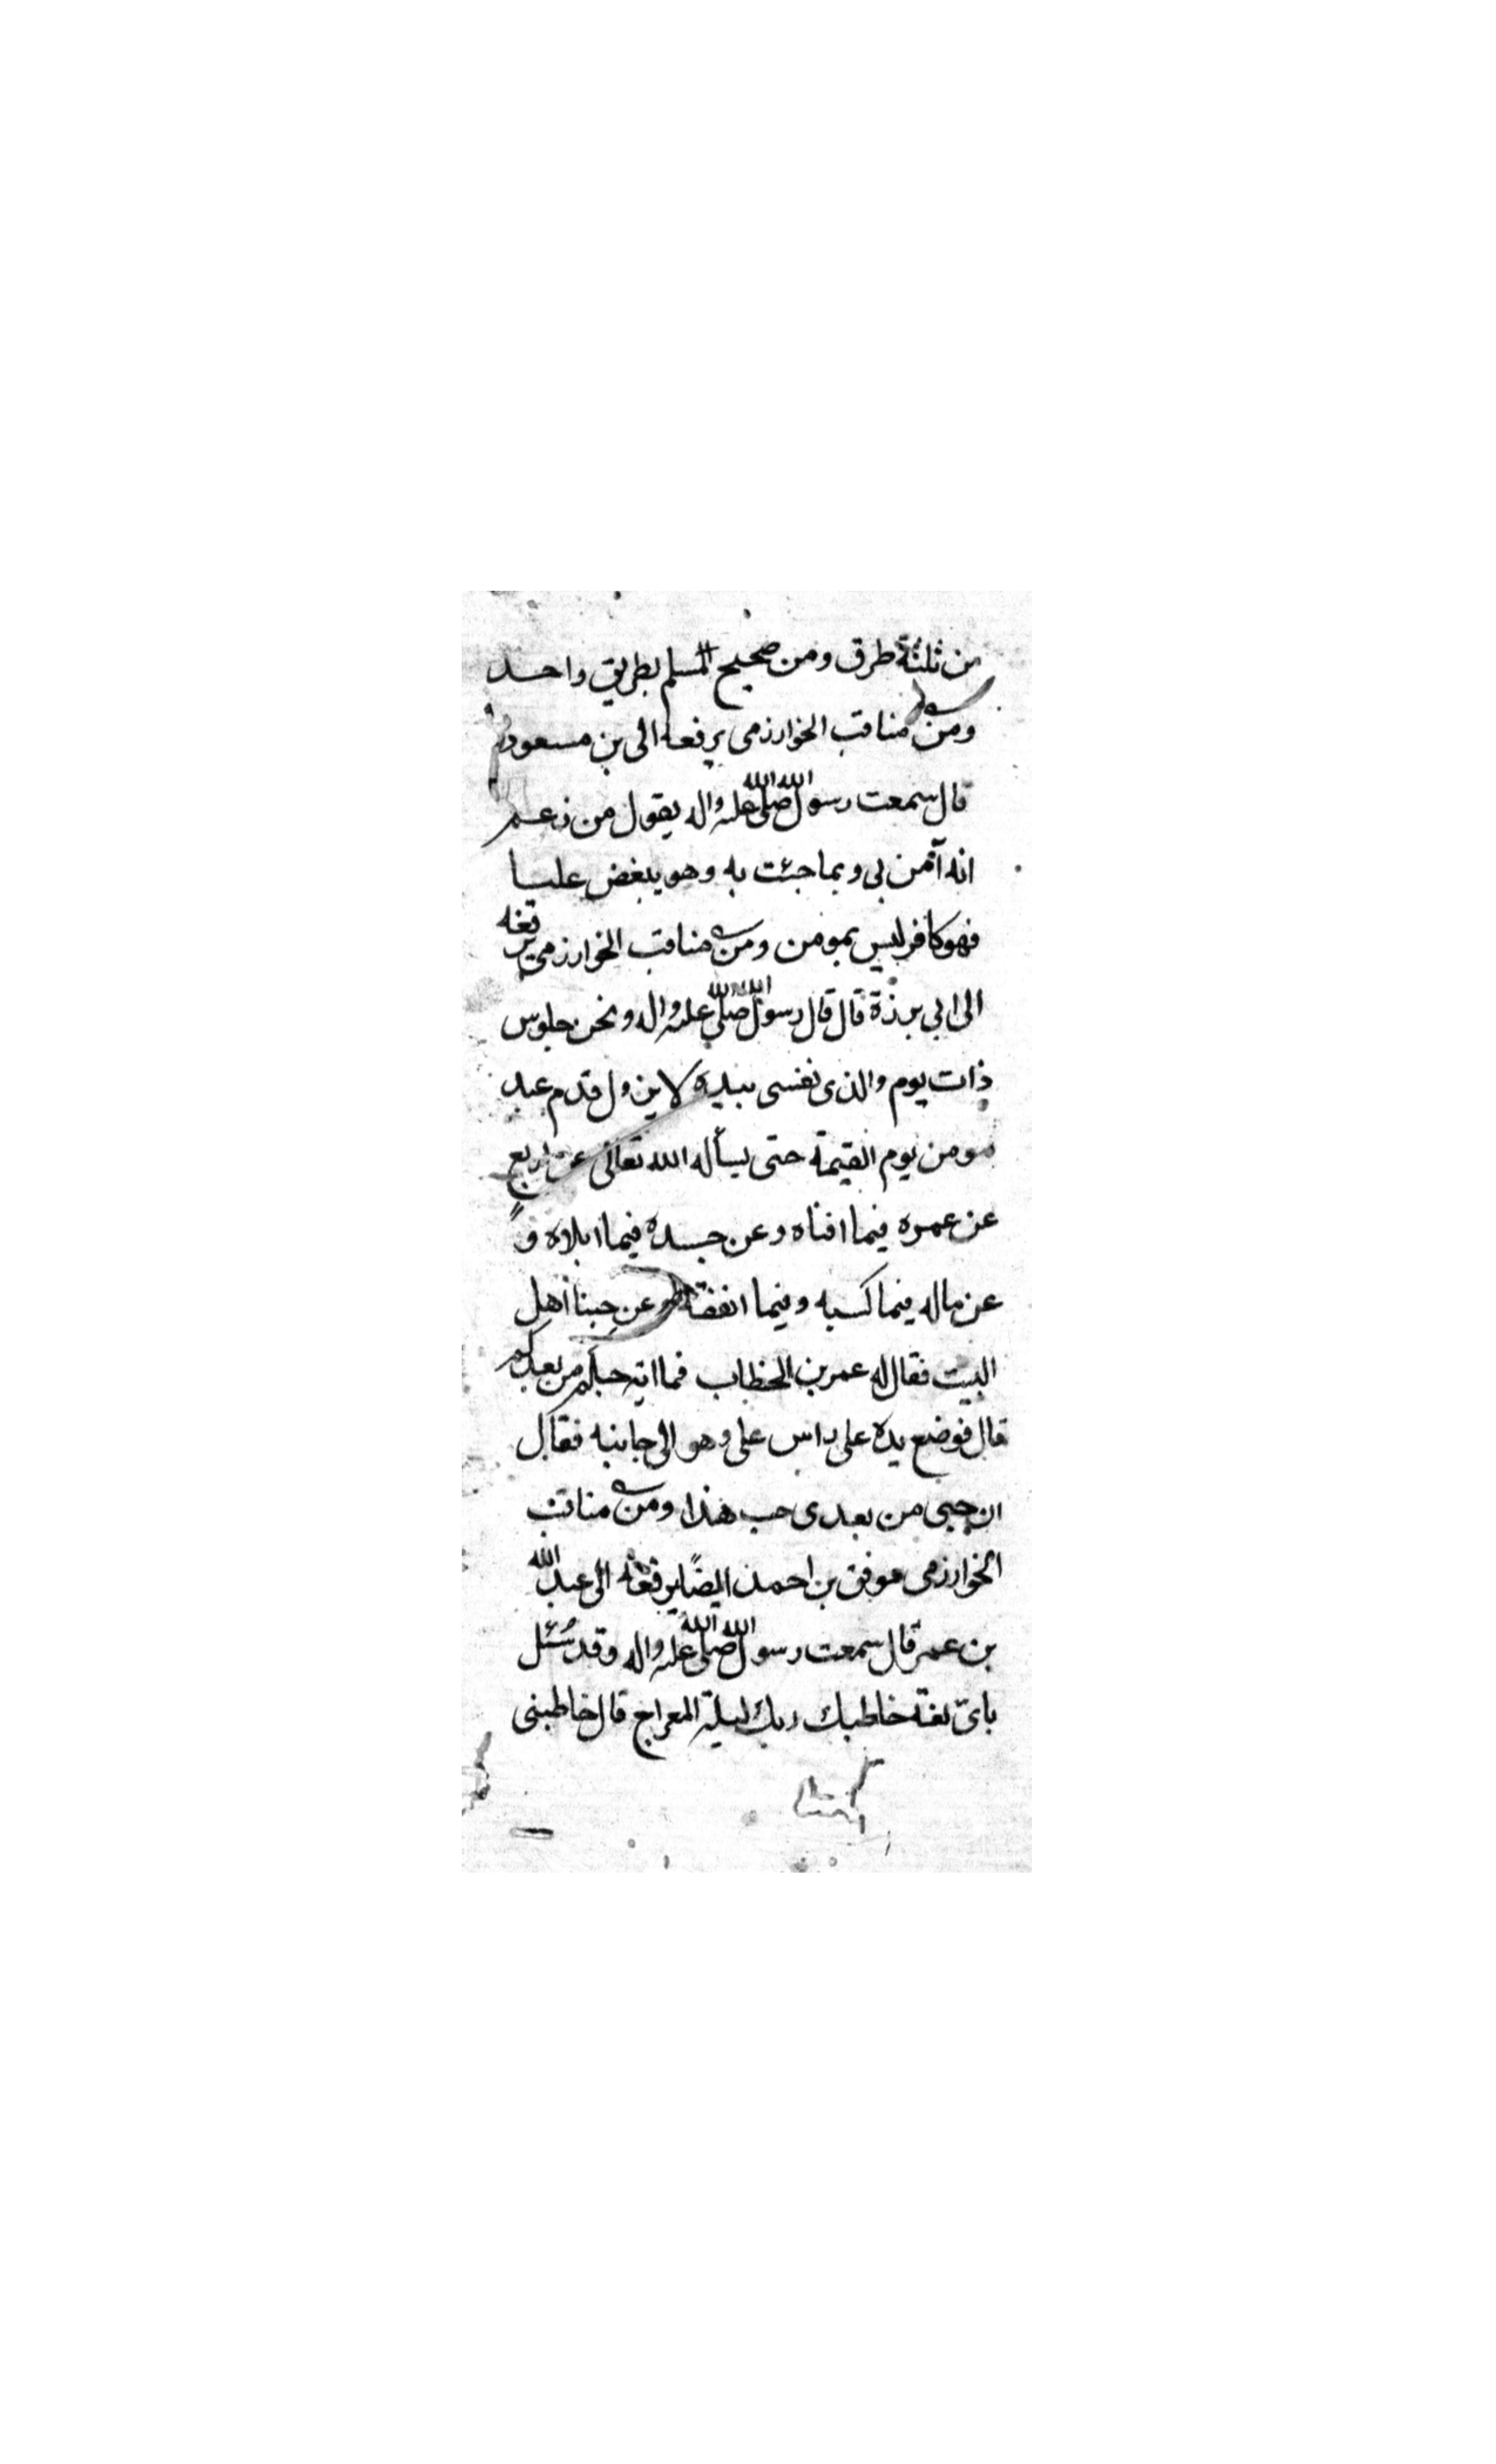 من ثلثة طرق ومن صحيح المسلم بطريق واحد
ومن مناقب الخوارزمى يرفعه الى بن مسعود
قال سمعت رسول الله صلى الله عليه واله يقول من زعم
انه آمن بى وبما جئت به وهو يبغض عليا
فهو كافر ليس بمومن ومن مناقب الخوارزمى يرفعه
الى ابى برزة قال قال رسول الله صلى الله عليه واله ونحن جلوس
ذات يوم والذى نفسى بيده لا يزول قدم عبد
مومن يوم القيمة حتى يسأله الله تعالى عن اربع
عن عمره فيما افناه وعن جسده فيما ابلاه و
عن ماله فيما كسبه وفيما انفقه وعن حبنا اهل
البيت فقال له عمر بن الخطاب فما اية حبكم من بعدكم
قال فوضع يده على راس على وهو الى جانبه فقال
ان حبى من بعدى حب هذا ومن مناقب
الخوارزمى موفق بن احمد ايضًا يرفعه الى عبد الله
بن عمر قال سمعت رسول الله صلى الله عليه واله وقد سُئل
باىّ لغة خاطبك ربك ليلة المعراج قال خاطبنى